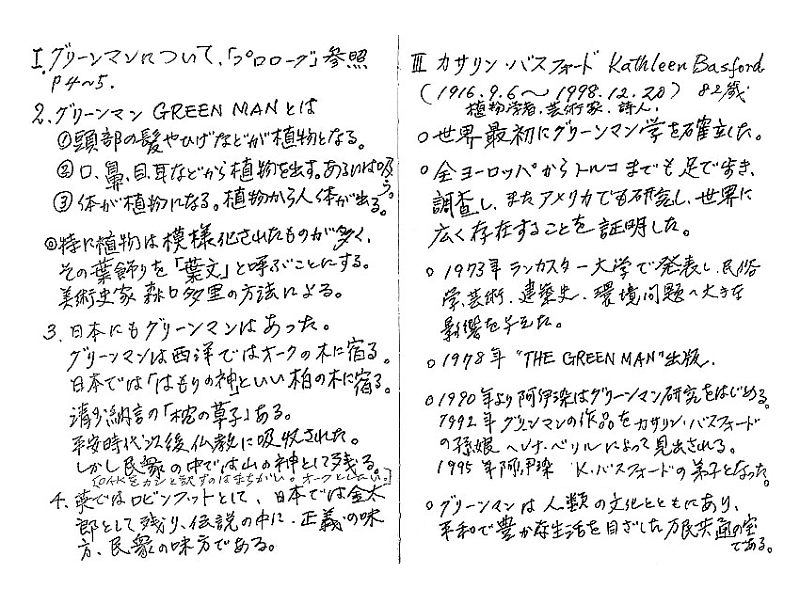 I. グリーンマンについて、「プロローグ」参照
P4〜5.
2. グリーンマン GREEN MANとは
①頭部の髪やひげなどが植物となる。
②口、鼻、目、耳などから植物を出す。あるいは吸う。
③体が植物になる。植物から人体が出る。
◎特に植物は模様化されたものが多く、
その葉飾りを「葉文」と呼ぶことにする。
美術史家 森口多里の方法による。
3. 日本にもグリーンマンはあった。
グリーンマンは西洋ではオークの木に宿る。
日本では「はもりの神」といい柏の木に宿る。
清少納言の「枕の草子」ある。
平安時代以後仏教に吸収された。
しかし民衆の中では山の神として残る。
(OAKをカシと訳すのはまちがい。オークとしたい。)
4. 英ではロビンフットとして、日本では金太
郎として残り、伝説の中に、正義の味
方、民衆の味方である。
III カサリン・バスフォード Kathleen Basford
(1916.9.6〜1998.12.20) 82歳
植物学者、芸術家、詩人.
○世界最初にグリーンマン学を確立した。
○全ヨーロッパからトルコまでも足で歩き、
調査し、またアメリカでも研究し、世界に
広く存在することを証明した。
○1973年ランカスター大学で発表し、民俗
学、芸術、建築史、環境問題へ大きな
影響を与えた。
○1978年 "THE GREEN MAN"出版.
○1990年より阿伊染はグリーンマン研究をはじめる。
1992年 グリンマンの作品をカサリン・バスフォード
の孫娘 ヘレナ・ベリルによって見出される。
1995年阿伊染 K.バスフォードの弟子となった。
○グリーンマンは人類の文化とともにあり、
平和で豊かな生活を目ざした万民共通の宝
である。